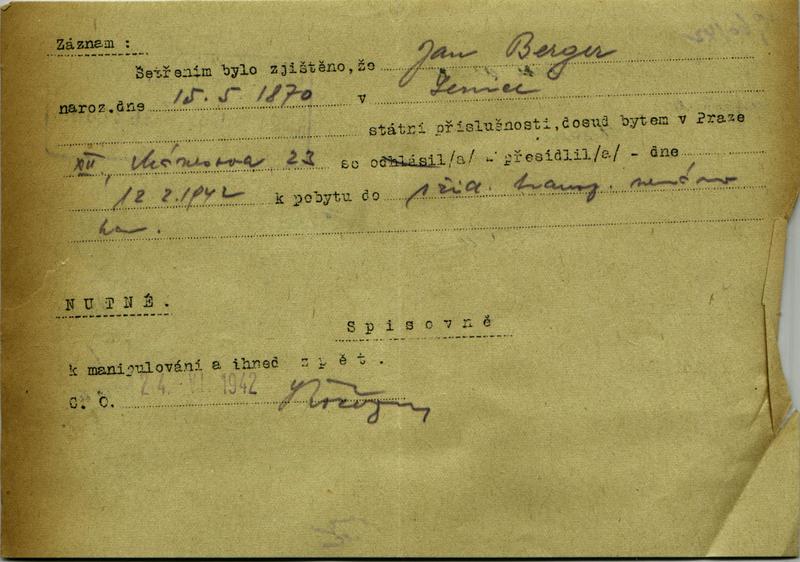 Záznam :
Šetřením bylo zjištěno, že Jan Berger
naroz.dne 15.5.1870 v
státní příslušnosti, dosud bytem v Praze
XII, Mánesova 23 se odhlásil/a/ - přesídlil/a/ - dne
12.2.1942 k pobytu do žid. transp. neznámo
kam.
NUTNÉ.
Spisovně
k manipulování a ihned zpět.
C. O. 24. VI. 1942